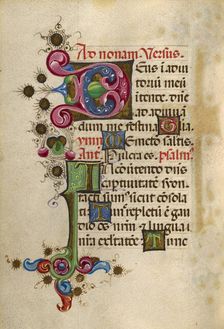 Ad nonam Versus.
Deus i adiu
toriu meu
intende. Dne
ad adiuua
dum me festina Gla
ymn Memeto salutis
Ant. Pulcra es. psalm.
In couertendo dns
captiuitate syon
facti sumus sicut cosola
ti Tuc repletu e gau
dio os nrm et lingua
nra exultatioe Tunc